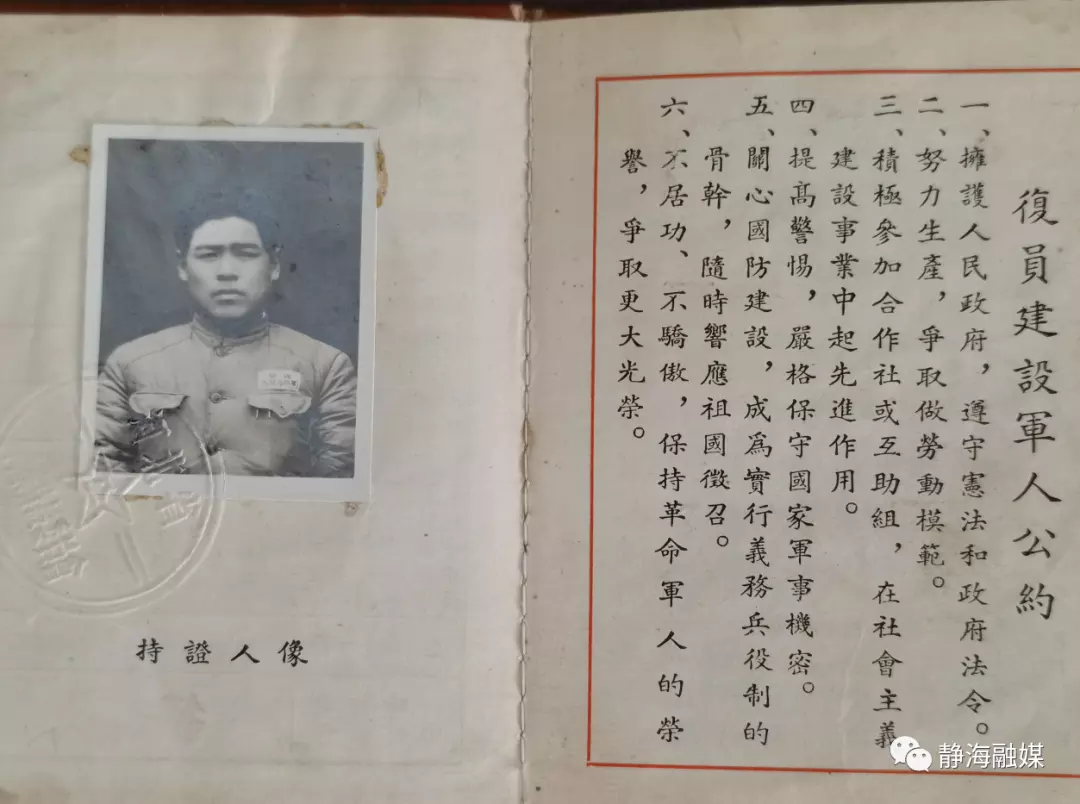 持證人像
復員建設軍人公約
一、擁護人民政府，遵守憲法和政府法令。
二、努力生產，爭取做勞動模範。
三、積極參加合作社或互助組，在社會主義
建設事業中起先進作用。
四、提高警惕，嚴格保守國家軍事機密。
五、關心國防建設，成爲實行義務兵役制的
骨幹，隨時響應祖國徵召。
六、不居功、不驕傲，保持革命軍人的榮
譽，爭取更大光榮。
静海融媒